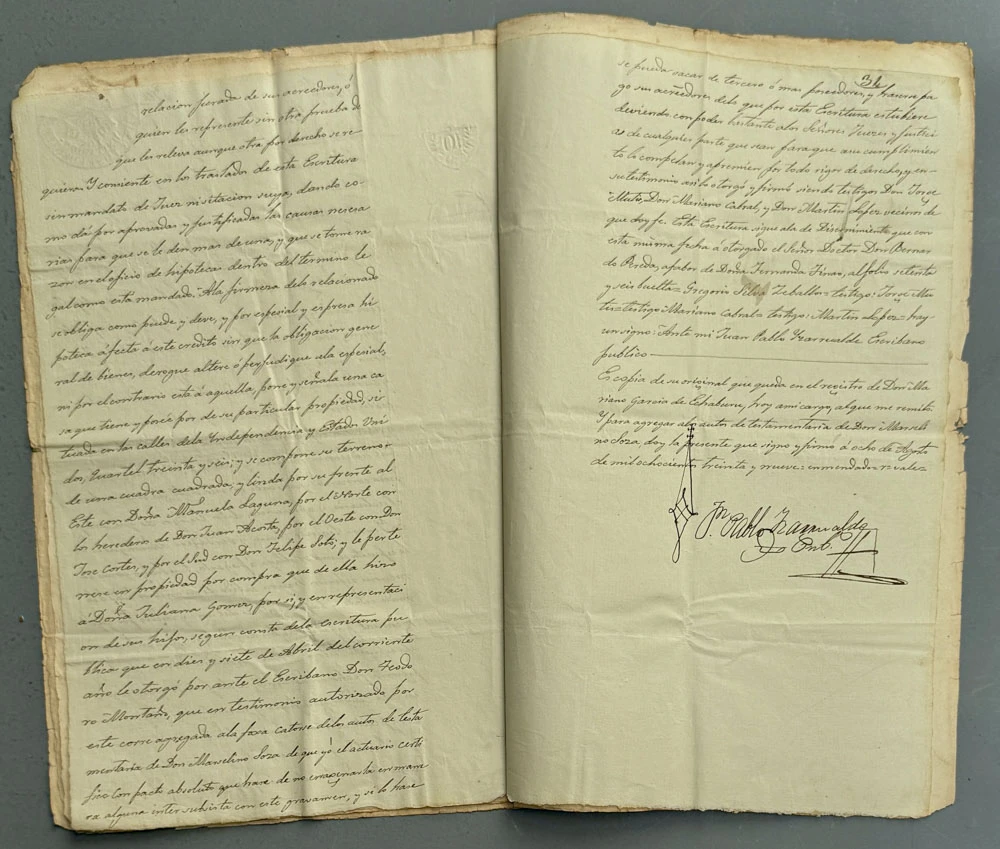 relacion jurada de sus acreedores, ó
quien les represente sin otra prueba de
que les releva aunque otra por derecho se re
quiera: Y consiente en los traslados de esta Escritura
sin mandato de Juez ni sitacion suya, dando co-
mo dá por aprovadas y justificadas las causas nesesa
rias para que se le den mas de una, y que se tome ra
zon en el oficio de hipotecas dentro del termino le
gal como esta mandado. Ala firmeza delo relacionado
se obliga como puede, y deve, y por especial y espresa hi
poteca áfecta á este credito sin que la obligacion gene
ral de bienes, derogue altere ó perjudique ala especial,
ni por el contrario esta á aquella, pone y señala una ca
sa que tiene y poseé por de su particular propiedad, sir
tuada en las calles dela Yndependencia y Estados Uni
dos, Quartel treinta y seis; y se compone su terreno
de una cuadra cuadrada; y linda por su frente al
Este con Doña Manuela Laguna, por el Norte con
los herederos de Don Juan Acosta, por el Oeste con Don
Jose Cortes, y por el Sud con Don Felipe Soto; y le perte
nese en propiedad por compra que de ella hiso
á Doña Juliana Gomez, por si, y en representaci
on de sus hijos, segun consta dela escritura pu
blica que en dies y siete de Abril del corriente
año le otorgó por ante el Escribano Don Teodo
ro Montaño, que en testimonio autorizado por
este corre agregada ala foxa catorse delos autos de testa
mentaria de Don Marselino Soza de que yó el actuario certi
fico Con pacto absoluto que hase de no enagenarla en mane
ra alguna inter subsista con este gravamen, y si lo hase
34
se pueda sacar de tercero ó mas poseedores, y haserse pa
go sus acreedores delo que por esta Escritura estubiere
deviendo con poder bastante alos Señores Jueses y Justici
as de cualquier parte que sean para que asu cumplimien
to lo compelan y apremien por todo rigor de derecho, y en
su testimonio asi lo otorgó y firmó siendo testigos Don Jorge
Mutis, Don Mariano Cabral, y Don Martin Lopez vecinos de
que doy fe. Esta Escritura sigue ala de Discernimiento que con
esta misma fecha á otorgado el Señor Doctor Don Bernar
do Pereda, afabor de Doña Fernanda al folio setenta
y seis buelta = Gregorio Silva Zeballos = testigo: Jorge Mu
tis = testigo Mariano Cabral = testigo: Martin Lopez = hay
un signo: Ante mi Juan Pablo Escribano
publico
Es copia de su original que queda en el registro de Don Ma
riano Garcia de Echaburu, hoy ami cargo, al que me remito.
Y para agregar alos autos de testamentaria de Don Marseli
no Soza, doy la presente que signo y firmo á ocho de Agosto
de mil ochocientos treinta y nueve: enmendado: vale=
Jn. Pablo
Esno. Pub.